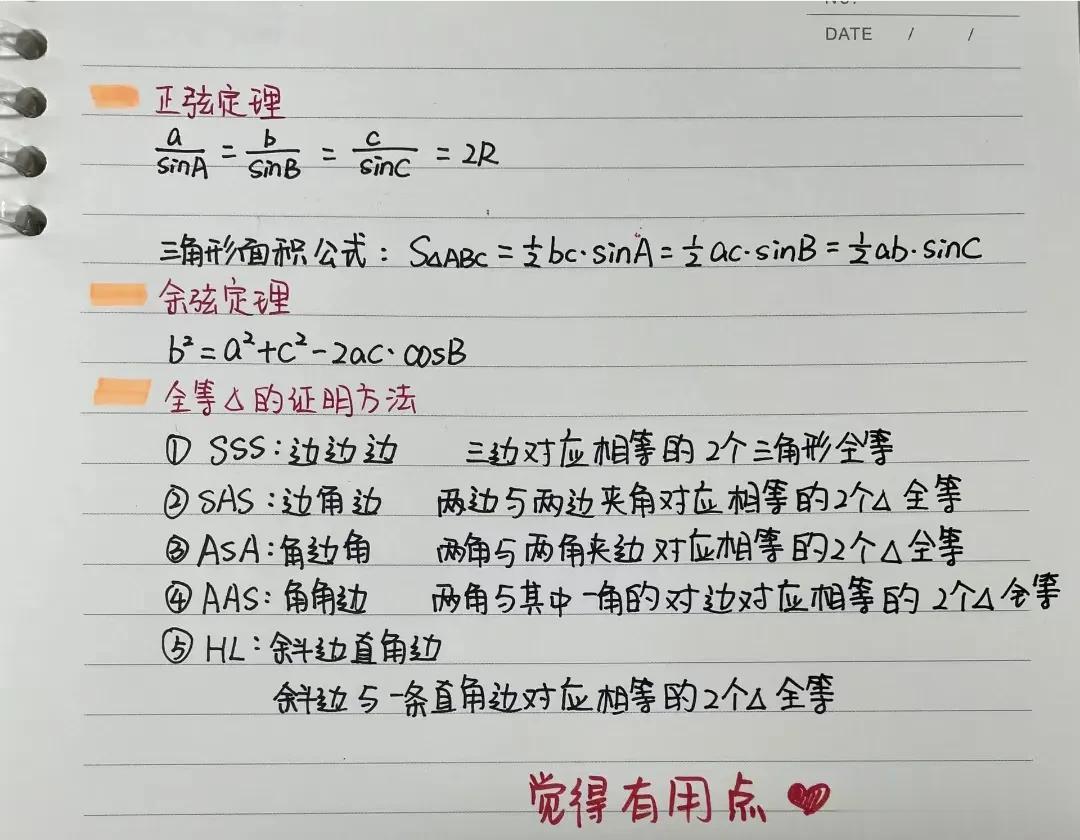 DATE / /
正弦定理
a/sinA = b/sinB = c/sinC = 2R
三角形面积公式：S△ABC = ½bc·sinA = ½ac·sinB = ½ab·sinC
余弦定理
b² = a²+c²-2ac·cosB
全等△的证明方法
① SSS：边边边 三边对应相等的2个三角形全等
② SAS：边角边 两边与两边夹角对应相等的2个△全等
③ ASA：角边角 两角与两角夹边对应相等的2个△全等
④ AAS：角角边 两角与其中一角的对边对应相等的2个△全等
⑤ HL：斜边直角边
斜边与一条直角边对应相等的2个△全等
觉得有用点❤